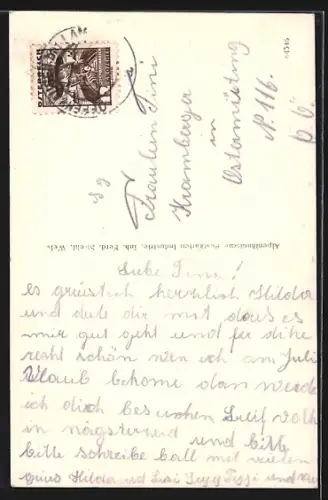 ÖSTERREICH
S g
Fräulein Tini
Kramberger
in
Ostermieting
N. 116.
O.Ö.
64546
Alpenländische Postkarten Industrie, Inh. Ferd. Streibl, Wels.
Liebe Tini!
es grüst dich herzlich Hilda
und teile dir mit das es
mir gut geht und fir dihe
recht schön wen ich am Juli
Urlaub bekome dan werde
ich dich besuchen
in nägster und bitte
bitte schreibe ball mit vielen
grüs Hilda und